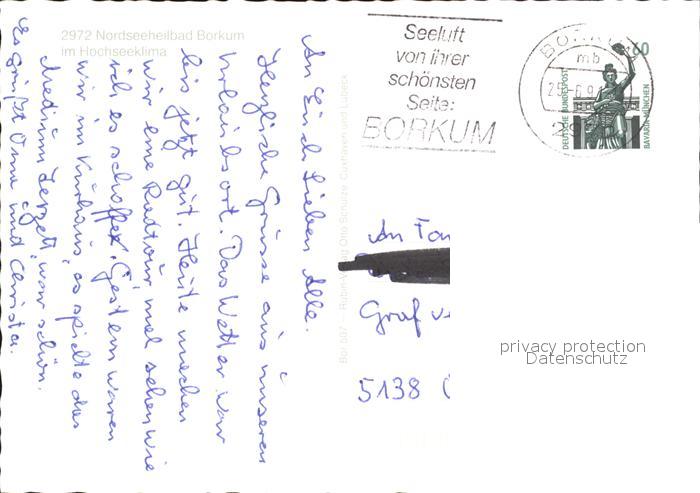 2972 Nordseeheilbad Borkum
im Hochseeklima
An Euch Lieben Alle.
Herzliche Grüsse aus unseren
Urlaubsort. Das Wetter war
bis jetzt gut. Heute machen
wir eine Radtour mal sehen wie
ich es schaffe. Gestern waren
wir im Kurhaus, es spielte das
Medium Terzett, war schön.
Es grüßt Oma und Christa.
Seeluft
von ihrer
schönsten
Seite:
BORKUM
BORKUM
mb
60
DEUTSCHE BUNDESPOST
BAVARIA MÜNCHEN
Otto Schulze Cuxhaven und Lübeck
Bor 507
An Fam
Graf v
5138
privacy protection
Datenschutz